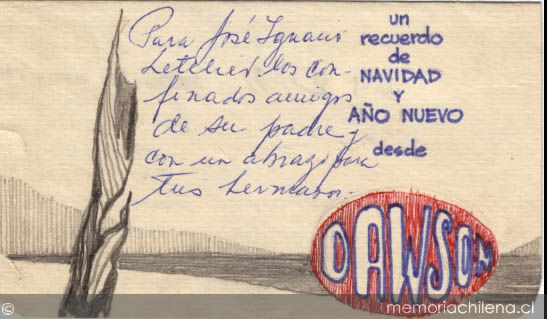 Para José Ignacio
Letelier: los con-
finados amigos
de su padre y
con un abrazo para
tus hermanos.
un
recuerdo
de
NAVIDAD
Y
AÑO NUEVO
desde
DAWSON
© memoriachilena.cl